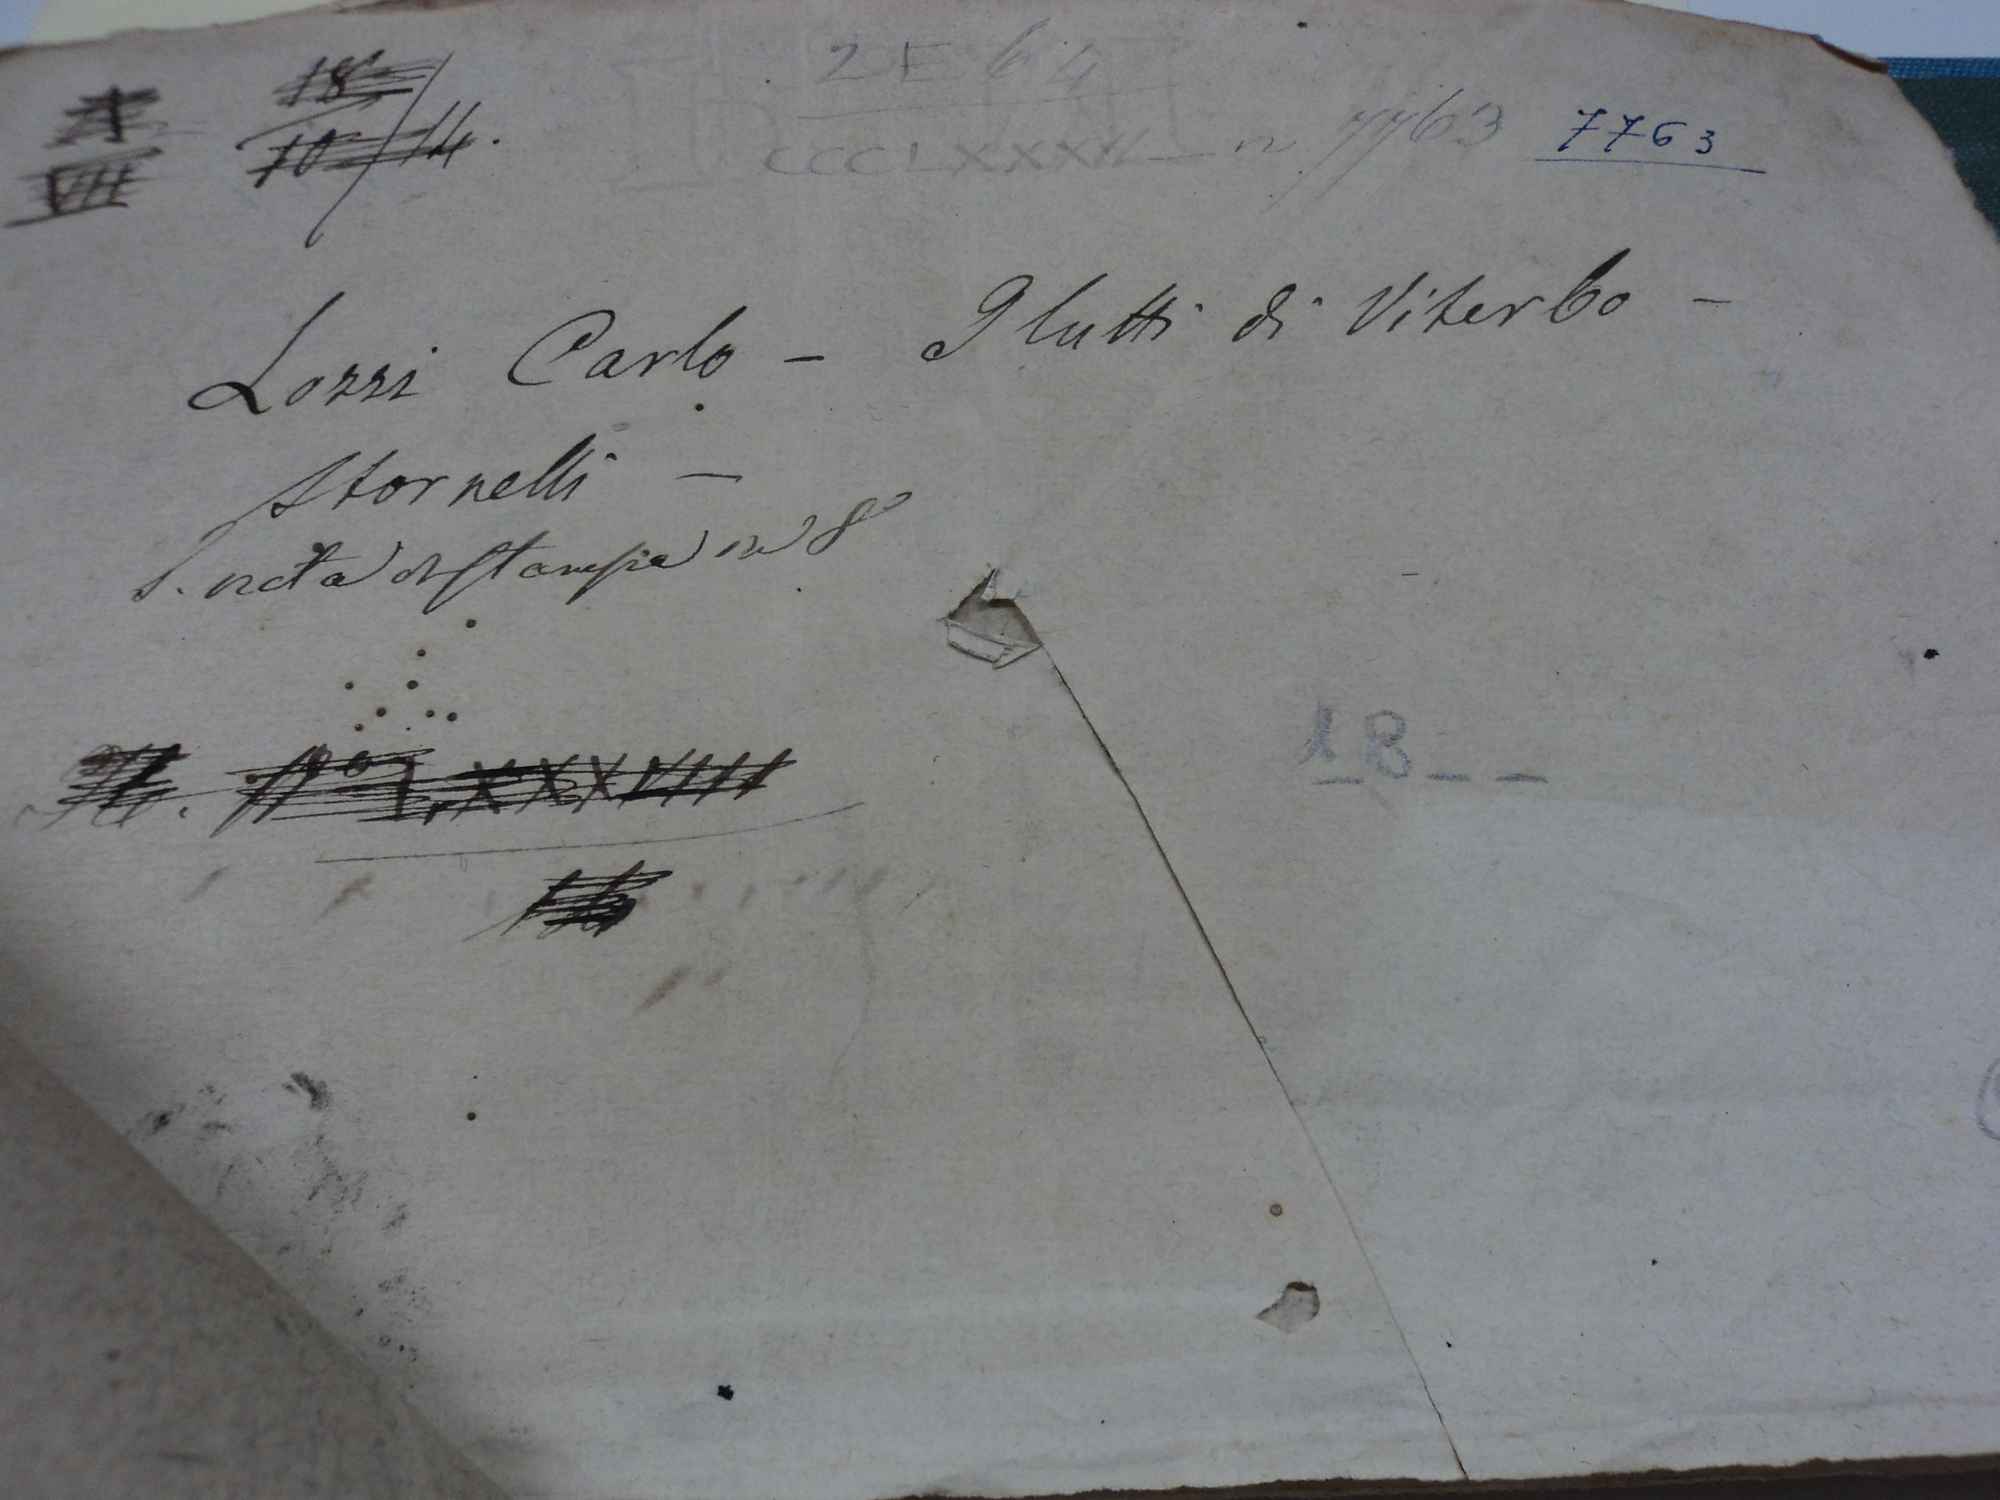 2 E 64
18
10/14.
VIII
CCCLXXXX n 7763 7763
Lozzi Carlo - I lutti di Viterbo -
Stornelli -
S. nota di stampa in 8°
18 _ _